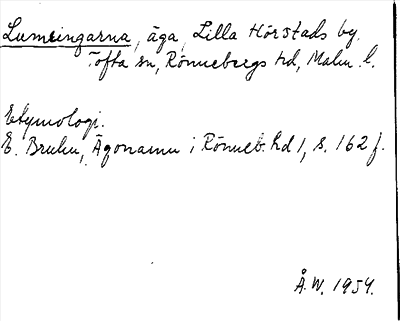 Lumringarna, äga, Lilla Hörstads by.
Tofta sn, Rönnebergs hd, Malm. l.
Etymologi.
E. Bruhn, Ägonamn i Rönneb. hd 1, s. 162 f.
Å. W. 1954.